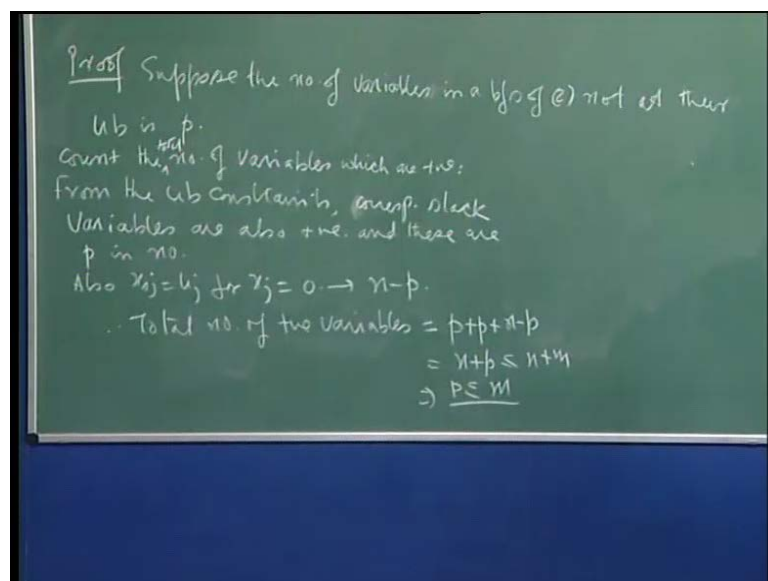 Proof Suppose the no. of variables in a bfs of (2) not at their
ub is p.
total
count the no. of variables which are +ve:
From the ub constraints, corresp. slack
variables are also +ve. and these are
p in no.
Also xsj = uj for xj = 0 → n-p.
∴ Total no. of +ve variables = p+p+n-p
= n+p ≤ n+m
⇒ p ≤ m